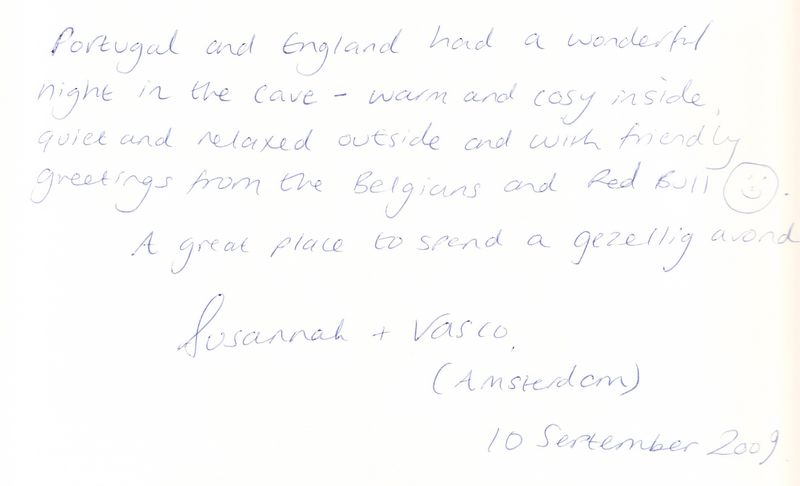 Portugal and England had a wonderful
night in the cave - warm and cosy inside,
quiet and relaxed outside and with friendly
greetings from the Belgians and Red Bull ☺.
A great place to spend a gezellig avond
Susannah + Vasco,
(Amsterdam)
10 September 2009